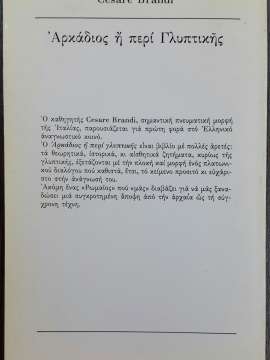 Cesare Brandi
Ἀρκάδιος ἤ περί Γλυπτικῆς
Ὁ καθηγητής Cesare Brandi, σημαντική πνευματική μορφή
τῆς Ἰταλίας, παρουσιάζεται γιά πρώτη φορά στό Ἑλληνικό
ἀναγνωστικό κοινό.
Ὁ Ἀρκάδιος ἤ περί γλυπτικῆς εἶναι βιβλίο μέ πολλές ἀρετές:
τά θεωρητικά, ἱστορικά, κι αἰσθητικά ζητήματα, κυρίως τῆς
γλυπτικῆς, ἐξετάζονται μέ τήν πλοκή καί μορφή ἑνός πλατωνι-
κοῦ διαλόγου πού καθιστᾶ, ἔτσι, τό κείμενο προσιτό κι εὐχάρι-
στο στήν ἀνάγνωσή του.
Ἀκόμη ἕνας «Ρωμαῖος» πού «μᾶς» διαβάζει γιά νά μᾶς ξανα-
δώσει μιά συγκροτημένη ἄποψη ἀπό τήν ἀρχαία ὡς τή σύγ-
χρονη τέχνη.